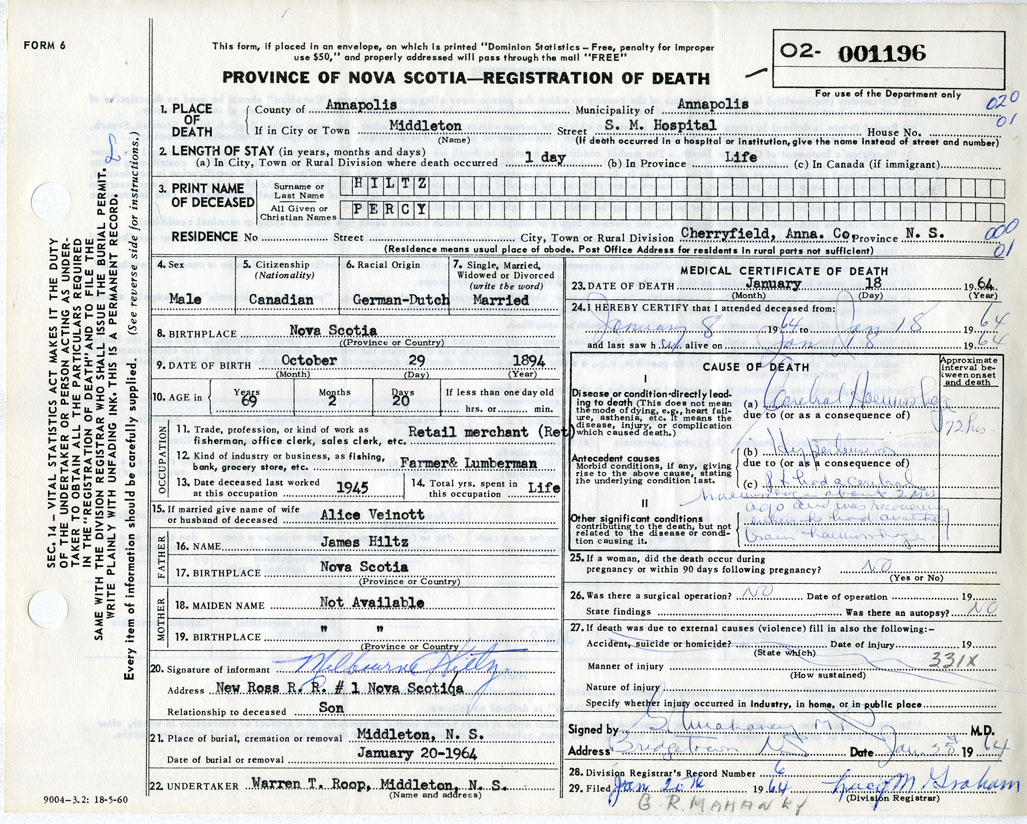 FORM 6
This form, if placed in an envelope, on which is printed "Dominion Statistics—Free, penalty for improper
use $50," and properly addressed will pass through the mail "FREE"
PROVINCE OF NOVA SCOTIA—REGISTRATION OF DEATH
O2- 001196
For use of the Department only
020
01
1. PLACE OF DEATH
County of Annapolis Municipality of Annapolis
If in City or Town Middleton Street S. M. Hospital House No.
(Name) (If death occurred in a hospital or institution, give the name instead of street and number)
2. LENGTH OF STAY (in years, months and days)
(a) In City, Town or Rural Division where death occurred 1 day (b) In Province Life (c) In Canada (if immigrant)
3. PRINT NAME OF DECEASED
Surname or Last Name HILTZ
All Given or Christian Names PERCY
RESIDENCE No Street City, Town or Rural Division Cherryfield, Anna. Co Province N. S.
000
01
(Residence means usual place of abode. Post Office Address for residents in rural parts not sufficient)
4. Sex
Male
5. Citizenship
(Nationality)
Canadian
6. Racial Origin
German-Dutch
7. Single, Married, Widowed or Divorced
(write the word)
Married
8. BIRTHPLACE Nova Scotia
((Province or Country)
9. DATE OF BIRTH October 29 1894
(Month) (Day) (Year)
10. AGE in Years Months Days If less than one day old
69 2 20 hrs. or min.
OCCUPATION
11. Trade, profession, or kind of work as
fisherman, office clerk, sales clerk, etc. Retail merchant (Ret)
12. Kind of industry or business, as fishing,
bank, grocery store, etc. Farmer& Lumberman
13. Date deceased last worked
at this occupation 1945
14. Total yrs. spent in
this occupation Life
15. If married give name of wife
or husband of deceased Alice Veinott
FATHER
16. NAME James Hiltz
17. BIRTHPLACE Nova Scotia
(Province or Country)
MOTHER
18. MAIDEN NAME Not Available
19. BIRTHPLACE " "
(Province or Country
20. Signature of informant Melbourne Hiltz.
Address New Ross R. R. # 1 Nova Scotiqa
Relationship to deceased Son
21. Place of burial, cremation or removal Middleton, N. S.
Date of burial or removal January 20-1964
22. UNDERTAKER Warren T. Roop, Middleton, N. S.
(Name and address)
9004-3.2: 18-5-60
MEDICAL CERTIFICATE OF DEATH
23. DATE OF DEATH January 18 1964
(Month) (Day) (Year)
24. I HEREBY CERTIFY that I attended deceased from:
January 8 1964 to Jan 18 1964
and last saw h alive on Jan 18 1964
CAUSE OF DEATH
Approximate interval between onset and death
I
Disease or condition directly leading to death (This does not mean the mode of dying, e.g., heart failure, asthenia, etc. It means the disease, injury, or complication which caused death.)
(a) Cerebral Haemorrhage
72 hrs.
due to (or as a consequence of)
Antecedent causes
Morbid conditions, if any, giving rise to the above cause, stating the underlying condition last.
(b) Hypertension
due to (or as a consequence of)
(c) had a cerebral
haemorrhage about 2
ago and was recovering
when he had another
brain haemorrhage
II
Other significant conditions
contributing to the death, but not related to the disease or condition causing it.
25. If a woman, did the death occur during
pregnancy or within 90 days following pregnancy? NO
(Yes or No)
26. Was there a surgical operation? NO Date of operation 19
State findings Was there an autopsy? NO
27. If death was due to external causes (violence) fill in also the following:—
Accident, suicide or homicide? Date of injury 19
(State which)
331X
Manner of injury
(How sustained)
Nature of injury
Specify whether injury occurred in Industry, in home, or in public place
Signed by Mahaney M D M.D.
Address Bridgetown NS Date Jan 1964
28. Division Registrar's Record Number 6
29. Filed Jan 1964 Lucy M. Graham
(Division Registrar)
G. R. MAHANEY
SEC. 14 – VITAL STATISTICS ACT MAKES IT THE DUTY
OF THE UNDERTAKER OR PERSON ACTING AS UNDER-
TAKER TO OBTAIN ALL THE PARTICULARS REQUIRED
IN THE "REGISTRATION OF DEATH" AND TO FILE THE
SAME WITH THE DIVISION REGISTRAR WHO SHALL ISSUE THE BURIAL PERMIT.
WRITE PLAINLY WITH UNFADING INK. THIS IS A PERMANENT RECORD.
Every item of information should be carefully supplied. (See reverse side for instructions.)